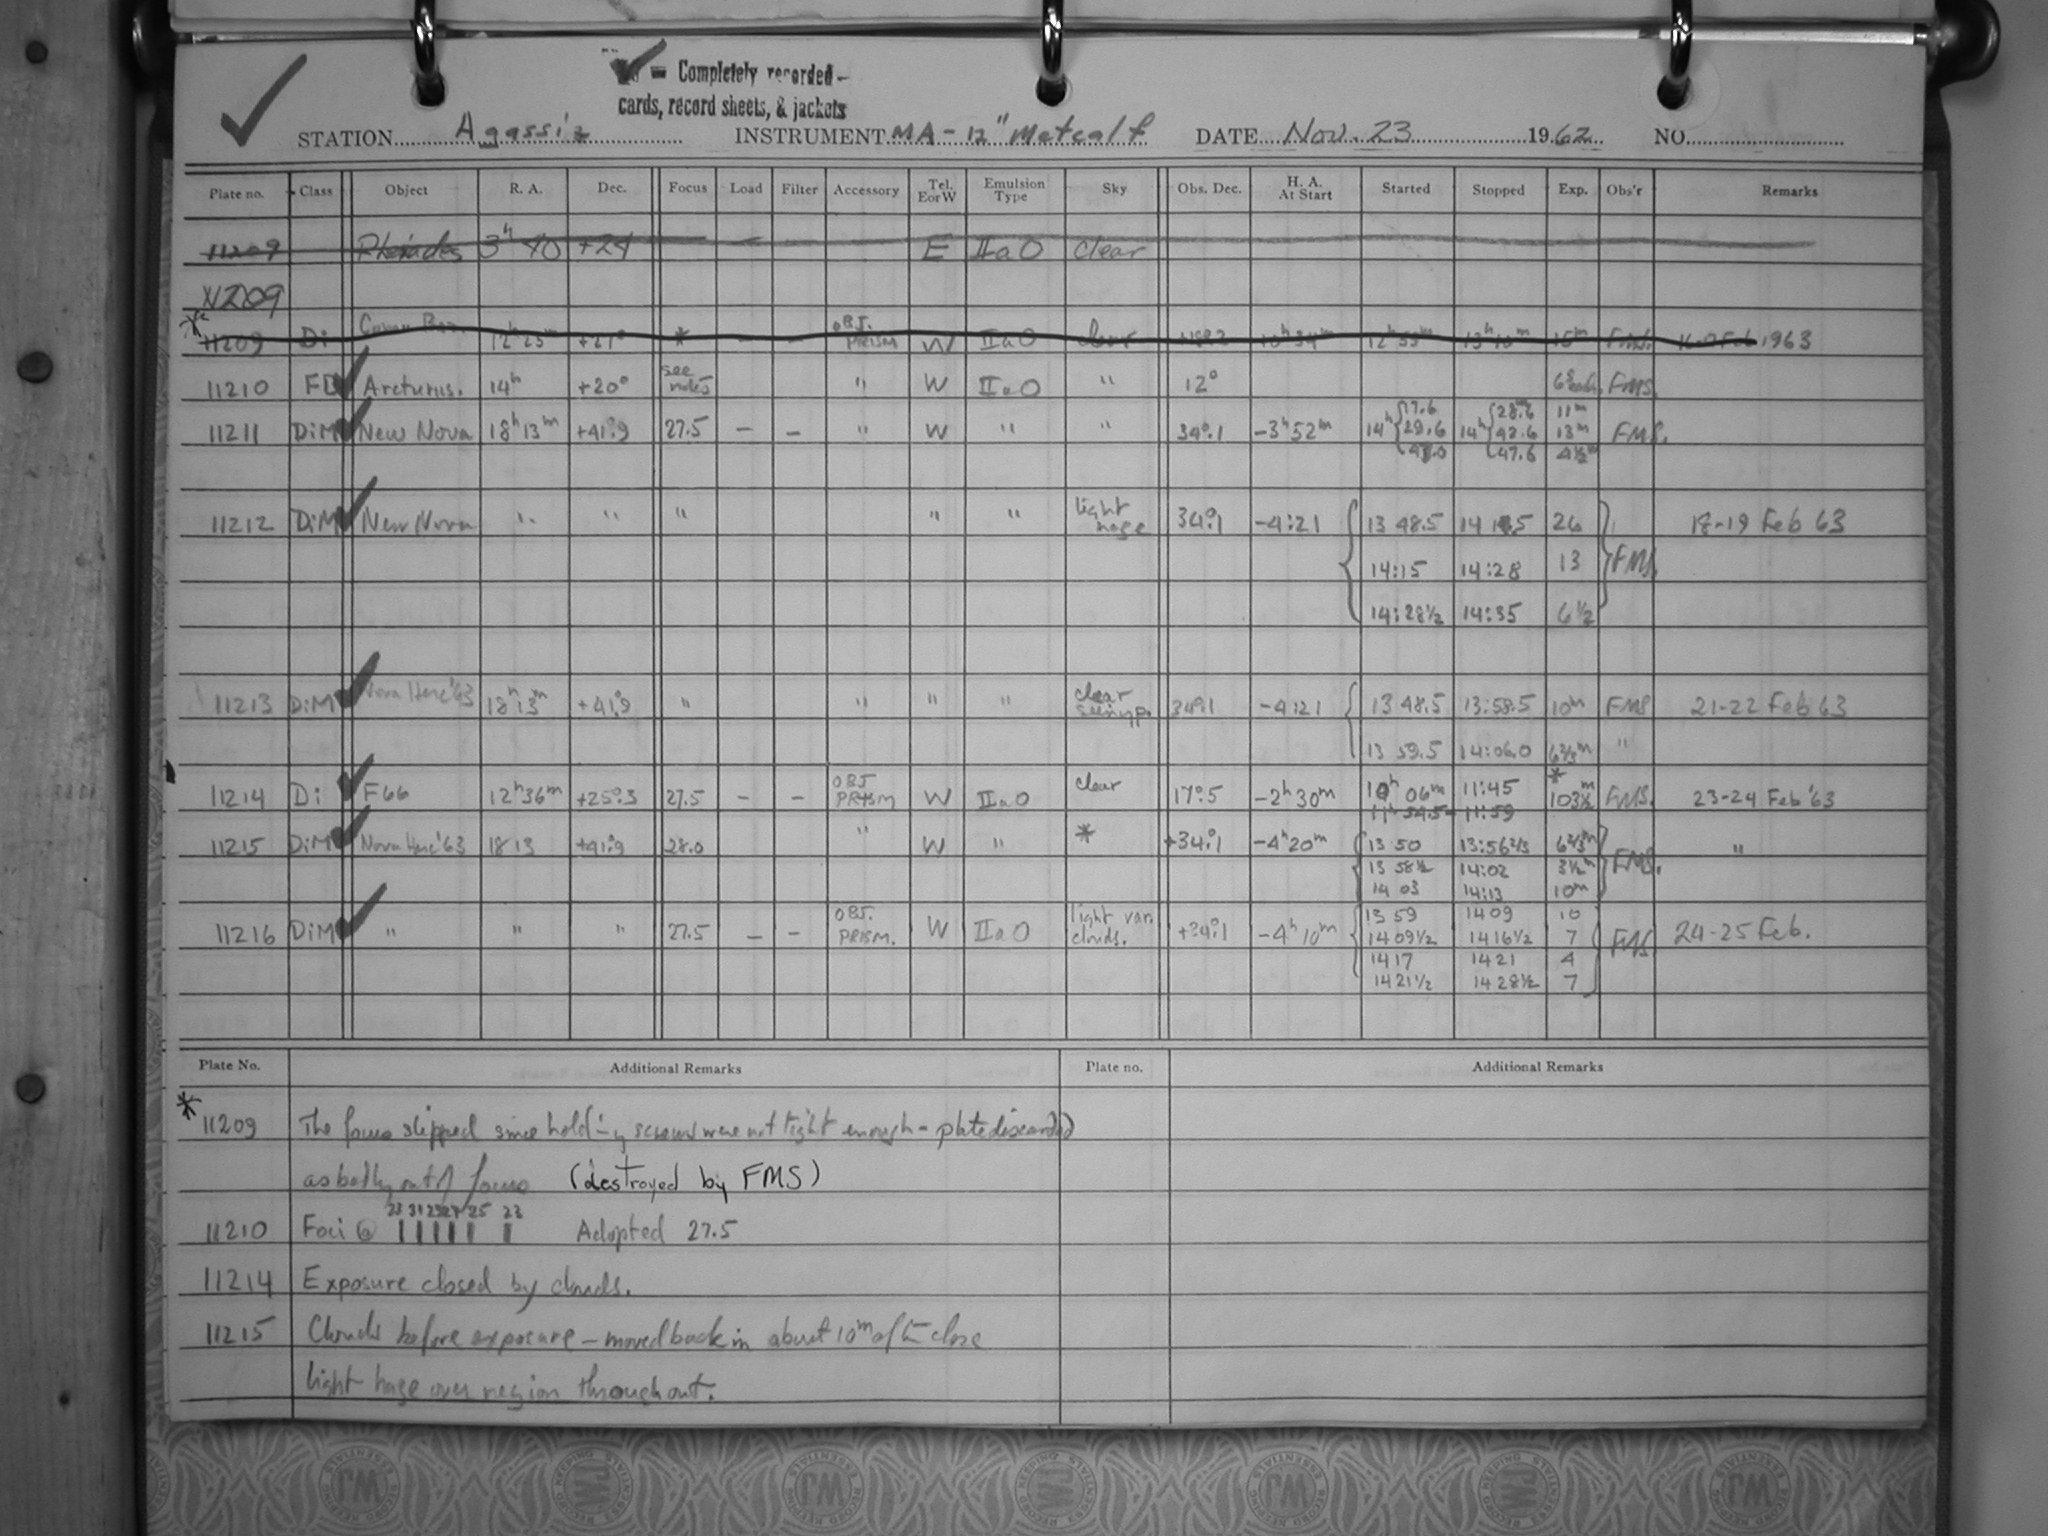 = Completely recorded -
cards, record sheets, & jackets
STATION Agassiz INSTRUMENT MA - 12" Metcalf DATE Nov. 23 1962 NO.
Plate no. Class Object R. A. Dec. Focus Load Filter Accessory Tel. E or W Emulsion Type Sky Obs. Dec. H. A. At Start Started Stopped Exp. Obs'r Remarks
11209 Pleiades 3h 40 +24 E IIaO clear
11209
* 11209 Di 12h 25m +27° * — — OBJ. PRISM W IIaO clear 15m FMS. 1963
11210 FD Arcturus. 14h +20° see notes " W IIaO " 12° FMS.
11211 DiM New Nova 18h 13m +41°.9 27.5 – – " W " " 34°.1 -3h 52m 14h 17.6 14h 28.6 11m FMS.
29.6 42.6 13m
43.0 47.6 4½m
11212 DiM New Nova " " " " " light haze 34°.1 -4:21 13 48.5 14 14.5 26 FMS. 18-19 Feb 63
14:15 14:28 13
14:28½ 14:35 6½
11213 DiM Nova Herc '63 18h 13m +41°.9 " " " " clear 34°.1 -4:21 13 48.5 13:58.5 10m FMS 21-22 Feb 63
13 59.5 14:06.0 6⅔m "
11214 Di F66 12h 36m +25°.3 27.5 – – OBJ PRISM W IIaO clear 17°.5 -2h 30m 10h 06m 11:45 * 103½m FMS. 23-24 Feb '63
11h 54.5 - 11:59
11215 DiM Nova Herc '63 18 13 +41°.9 28.0 " W " * +34°.1 -4h 20m 13 50 13:56⅔ 6⅔m FMS. "
13 58½ 14:02 3½m
14 03 14:13 10m
11216 DiM " " " 27.5 – – OBJ. PRISM. W IIaO light var. clouds. +34°.1 -4h 10m 13 59 14 09 10 FMS 24-25 Feb.
14 09½ 14 16½ 7
14 17 14 21 4
14 21½ 14 28½ 7
Plate No. Additional Remarks Plate no. Additional Remarks
* 11209 The focus slipped since holding screws were not tight enough - plate discarded
as badly out of focus (destroyed by FMS)
11210 Foci @ 25 23 Adopted 27.5
11214 Exposure closed by clouds.
11215 Clouds before exposure - moved back in about 10m after close
light haze over region throughout.